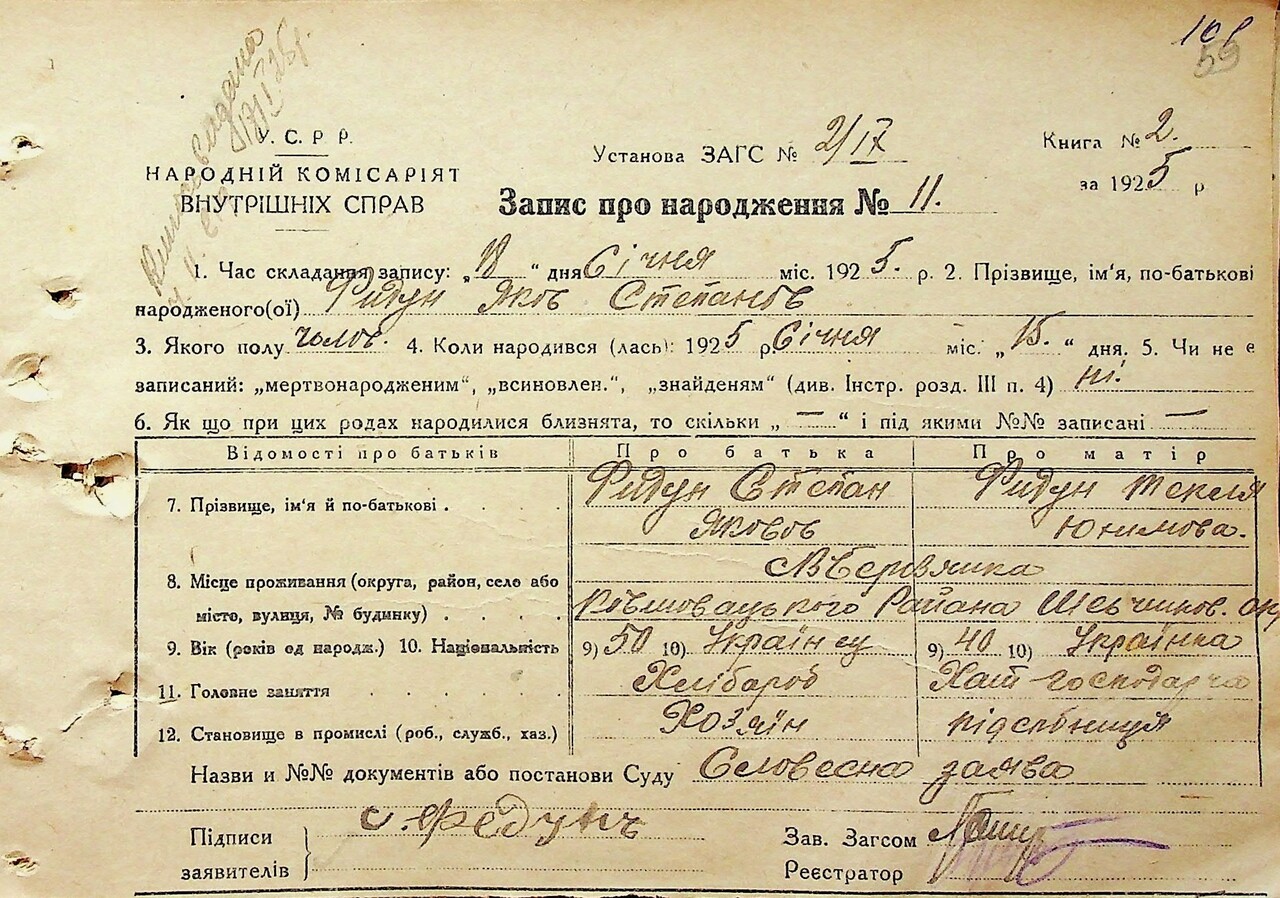 10 р
59
видана
У. С. Р. Р.
НАРОДНІЙ КОМІСАРІЯТ
ВНУТРІШНІХ СПРАВ
Установа ЗАГС № 2/17
Книга № 2.
за 1925 р
Запис про народження № 11.
1. Час складання запису: „18“ дня Січня міс. 1925. р. 2. Прізвище, ім'я, по-батькові
народженого(ої) Фидун Яков Степанов
3. Якого полу чолов. 4. Коли народився (лась): 1925 р. Січня міс. „15.“ дня. 5. Чи не є
записаний: „мертвонародженим“, „всиновлен.“, „знайденям“ (див. Інстр. розд. III п. 4) ні.
6. Як що при цих родах народилися близнята, то скільки „—“ і під якими №№ записані —
Відомості про батьків Про батька Про матір
7. Прізвище, ім'я й по-батькові . Фидун Степан Фидун Текля
Яковов Юхимова.
8. Місце проживання (округа, район, село або
місто, вулиця, № будинку) Района
9. Вік (років од народж.) 10. Національність 9) 50 10) Українец 9) 40 10) Українка
11. Головне заняття Хлібароб Хат-господарча
12. Становище в промислі (роб., служб., хаз.) Хозяїн
Назви и №№ документів або постанови Суду Словесна заява
Підписи
заявителів
с. Федунъ
Зав. Загсом
Реєстратор